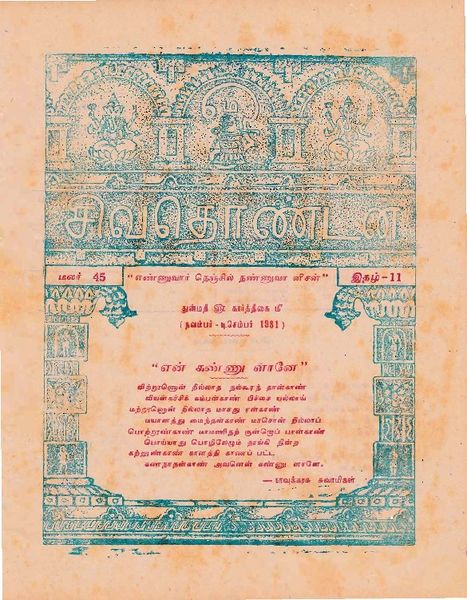 சிவதொண்டன்
மலர் 45
"எண்ணுவார் நெஞ்சில் நண்ணுவா னீசன்"
இதழ்-11
துன்மதி ௵ கார்த்திகை ௴
(நவம்பர் - டிசெம்பர் 1981)
"என் கண்ணு ளானே"
விற்றூணொன் றில்லாத நல்கூர்ந் தான்காண்
வியன்கச்சிக் கம்பன்காண் பிச்சை யல்லால்
மற்றூணொன் றில்லாத மாசது ரன்காண்
மயானத்து மைந்தன்காண் மாசொன் றில்லாப்
பொற்றூண்காண் மாமணிநற் குன்றொப் பான்காண்
பொய்யாது பொழிலேழும் தாங்கி நின்ற
கற்றூண்காண் காளத்தி காணப் பட்ட
கணநாதன்காண் அவனென் கண்ணு ளானே.
— நாவுக்கரசு சுவாமிகள்